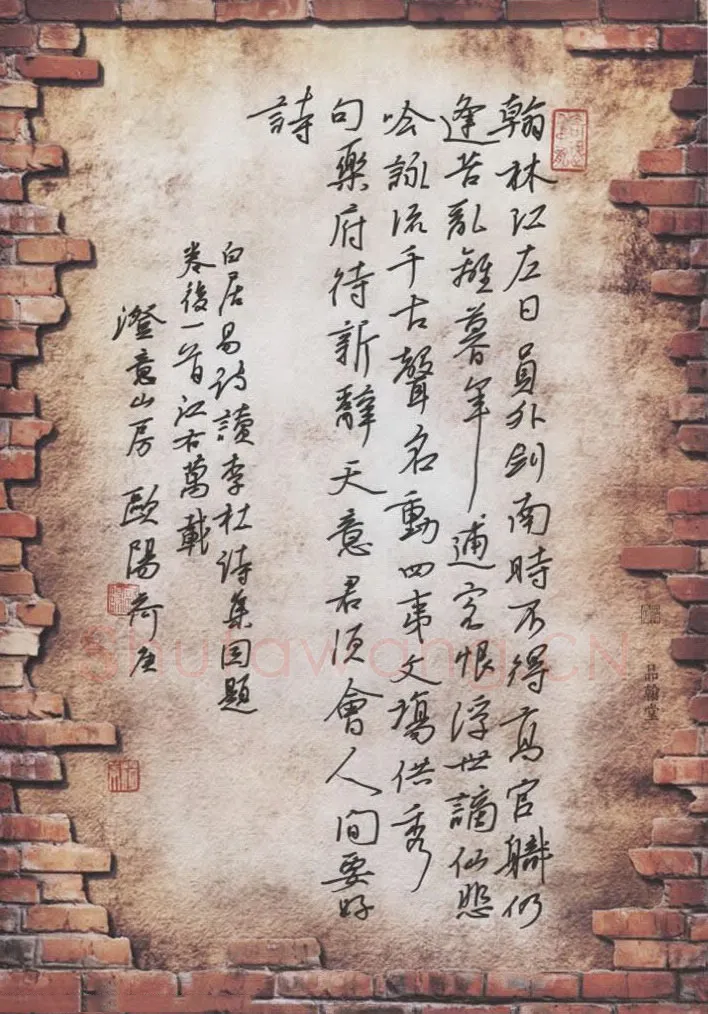 翰林江左日員外劍南時不得高官職仍
逢苦亂離暮年逋客恨浮世謫仙悲
吟詠流千古聲名動四夷文場供秀
句樂府待新辭天意君須會人間要好
詩
白居易詩讀李杜詩集因題
卷後一首江右萬載
澄意山房歐陽荷庚
品翰堂
Shufawang.CN